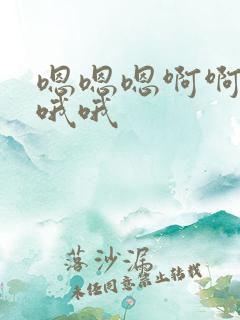 嗯嗯嗯啊啊
哦哦
落沙漏
未经同意禁止转载